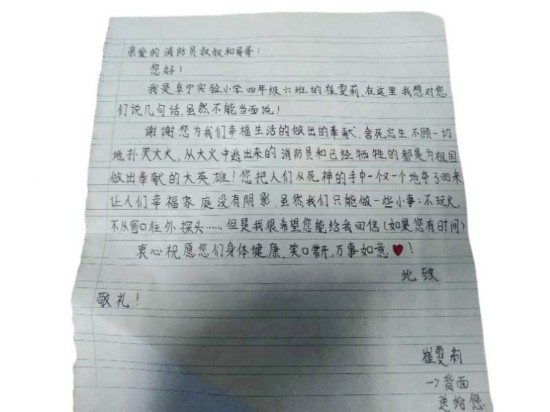 亲爱的消防员叔叔和哥哥：
您好！
我是阜宁实验小学四年级六班的崔雯莉,在这里我想对您
们说几句话,虽然不能当面说！
谢谢您为我们幸福生活的做出的奉献、舍死忘生不顾一切
地扑灭大火,从大火中逃出来的消防员和已经牺牲的都是为祖国
做出奉献的大英雄！您把人们从死神的手中一个又一个地夺了回来
让人们幸福家庭没有阴影,虽然我们只能做一些小事:不玩火,
不从窗口往外探头……但是我很希望您能给我回信(如果您有时间)
衷心祝愿您们身体健康、笑口常开,万事如意♥！
此致
敬礼！
崔雯莉
→背面
送给您